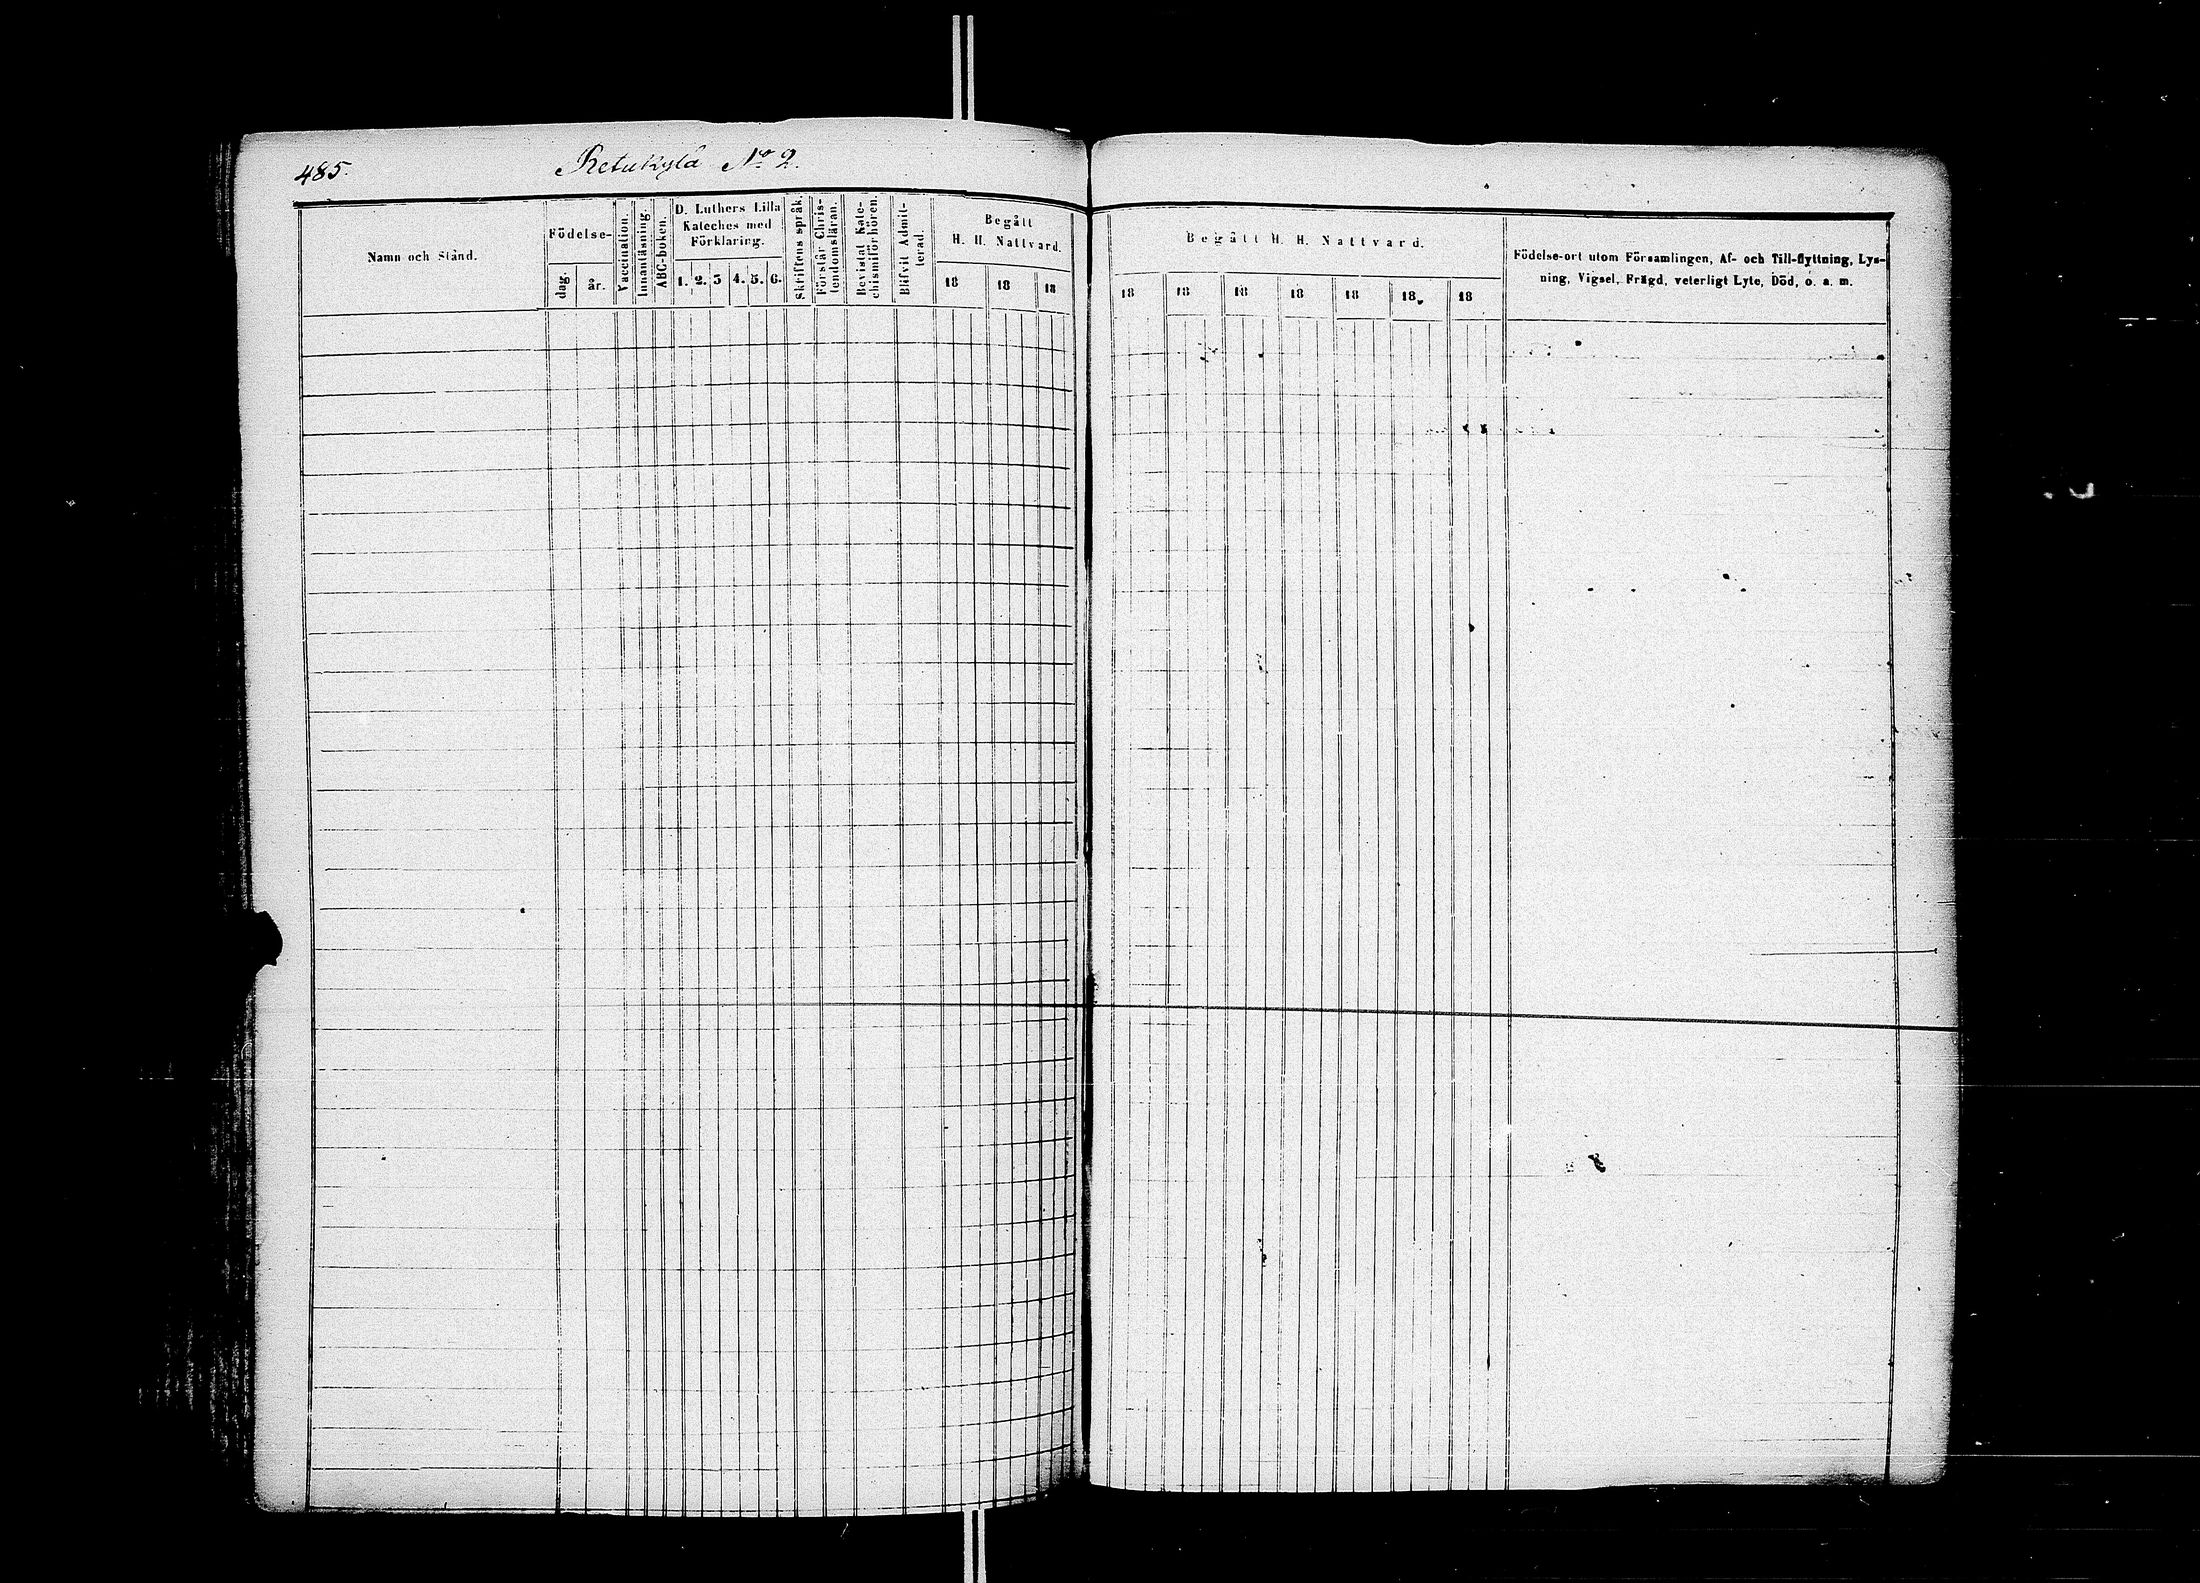 485.
Retukylä No 2.
Namn och Stånd.
Födelse-
dag.
år.
Vaccination.
Innanläsning.
ABC-boken.
D. Luthers Lilla
Kateches med
Förklaring.
1. 2. 3 4. 5. 6.
Skriftens språk.
Förstår Chris-
tendomsläran.
Bevistat Kate-
chismiförhören.
Blifvit Admit-
terad.
Begått
H. H. Nattvard.
18 18 18
Begått H. H. Nattvard.
18 18 18 18 18 18 18
Födelse-ort utom Församlingen, Af- och Till-flyttning, Lys-
ning, Vigsel, Frägd, veterligt Lyte, Död, o. a. m.